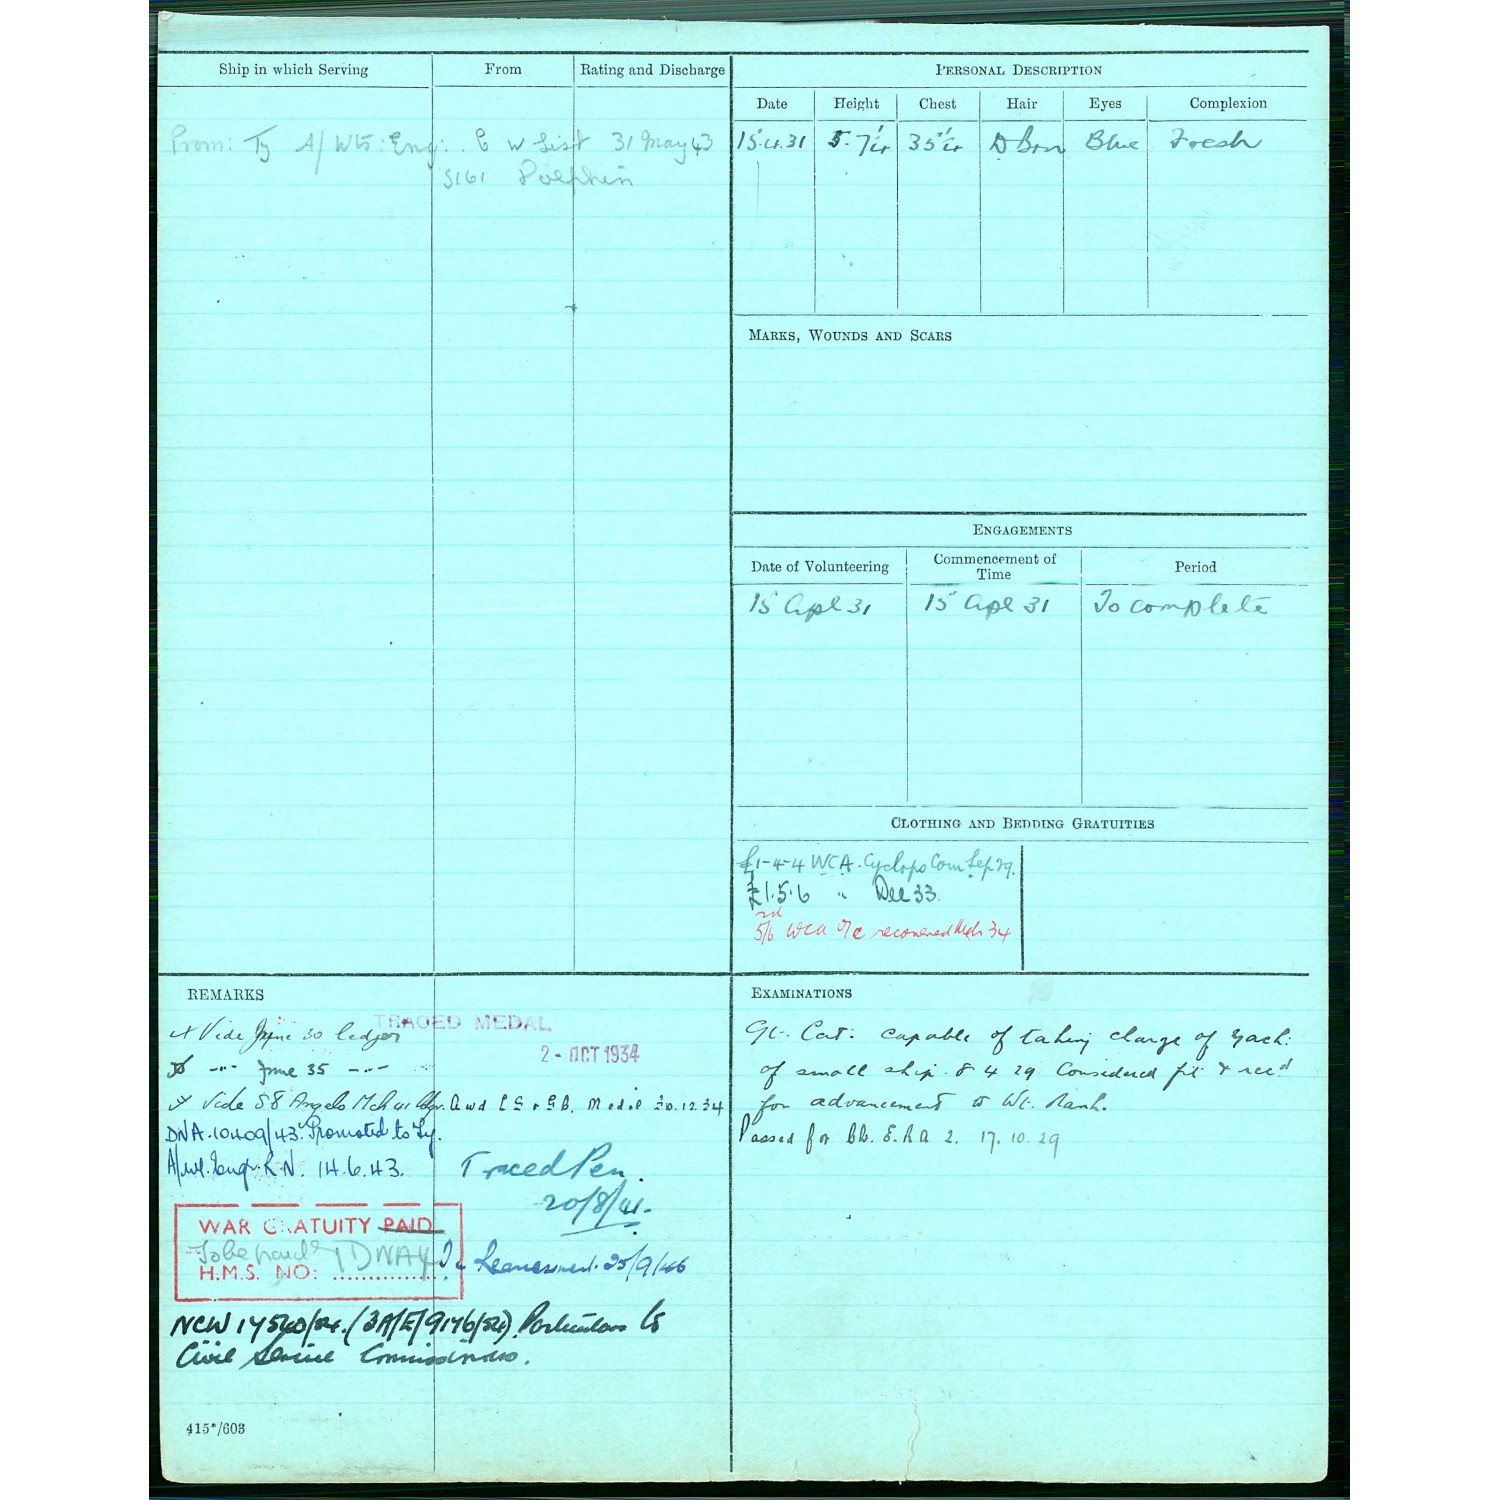 Ship in which Serving
From
Rating and Discharge
Prom: Ty A/ Wt: Eng: C W List 31 May 43
5161 Dolphin
PERSONAL DESCRIPTION
Date Height Chest Hair Eyes Complexion
15.4.31 5. 7½ 35½ D Brn Blue Fresh
MARKS, WOUNDS AND SCARS
ENGAGEMENTS
Date of Volunteering
Commencement of Time
Period
15 Apl 31 15 Apl 31 To complete
CLOTHING AND BEDDING GRATUITIES
£1-4-4 WCA. Cyclops Com Sep 29.
£1.5.6 " Dec 33.
5/6 WCA O/C recovered Mch 34
REMARKS
Vide June 30 ledger
TRACED MEDAL
2 - OCT 1934
-"- June 35 -"-
Vide S8 Angelo Mch 41 Awd L S & G C. Medal 20.12.34
DNA.10409/43. Promoted to Ty.
A/Wt. Engr. R.N. 14.6.43.
Traced Pen.
20/8/41.
WAR GRATUITY PAID
To be paid
H.M.S. NO: ..............
25/9/46
Particulars to
Civil Service Commissioners.
415*/603
EXAMINATIONS
Gt. Cat: capable of taking charge of mach:
of small ship. 8 4 29 Considered fit & rec'd
for advancement to Wt. Rank.
Passed for Ch. E.R.A 2. 17.10.29